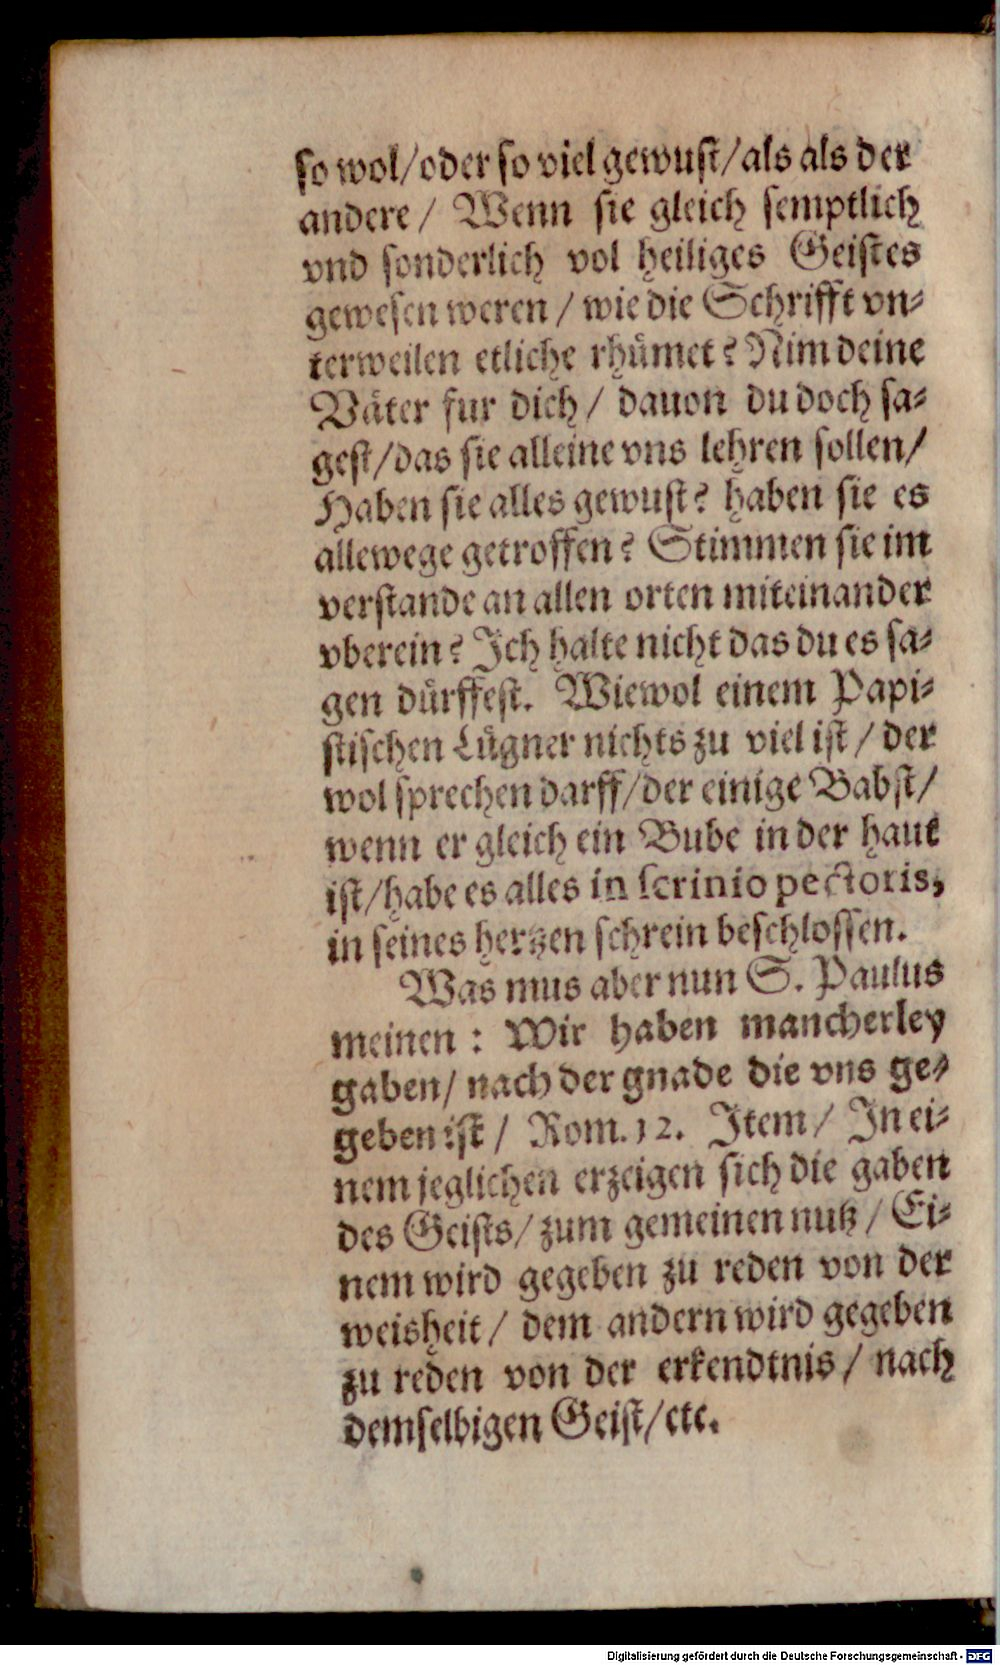 so wol/oder so viel gewust/als als der
andere/ Wenn sie gleich semptlich
vnd sonderlich vol heiliges Geistes
gewesen weren / wie die Schrifft vn⸗
terweilen etliche rhuͤmet? Nim deine
Vaͤter fur dich/ dauon du doch sa⸗
gest/das sie alleine vns lehren sollen/
Haben sie alles gewust? haben sie es
allewege getroffen? Stimmen sie im
verstande an allen orten miteinander
vberein? Ich halte nicht das du es sa⸗
gen duͤrffest. Wiewol einem Papi⸗
stischen Luͤgner nichts zu viel ist / der
wol sprechen darff/der einige Babst/
wenn er gleich ein Bube in der haut
ist/habe es alles in scrinio pectoris,
in seines hertzen schrein beschlossen.
Was mus aber nun S. Paulus
meinen : Wir haben mancherley
gaben/ nach der gnade die vns ge⸗
geben ist / Rom. 12. Item/ In ei⸗
nem jeglichen erzeigen sich die gaben
des Geists/ zum gemeinen nutz / Ei⸗
nem wird gegeben zu reden von der
weisheit/ dem andern wird gegeben
zu reden von der erkendtnis/ nach
demselbigen Geist/etc.
Digitalisierung gefördert durch die Deutsche Forschungsgemeinschaft - DFG